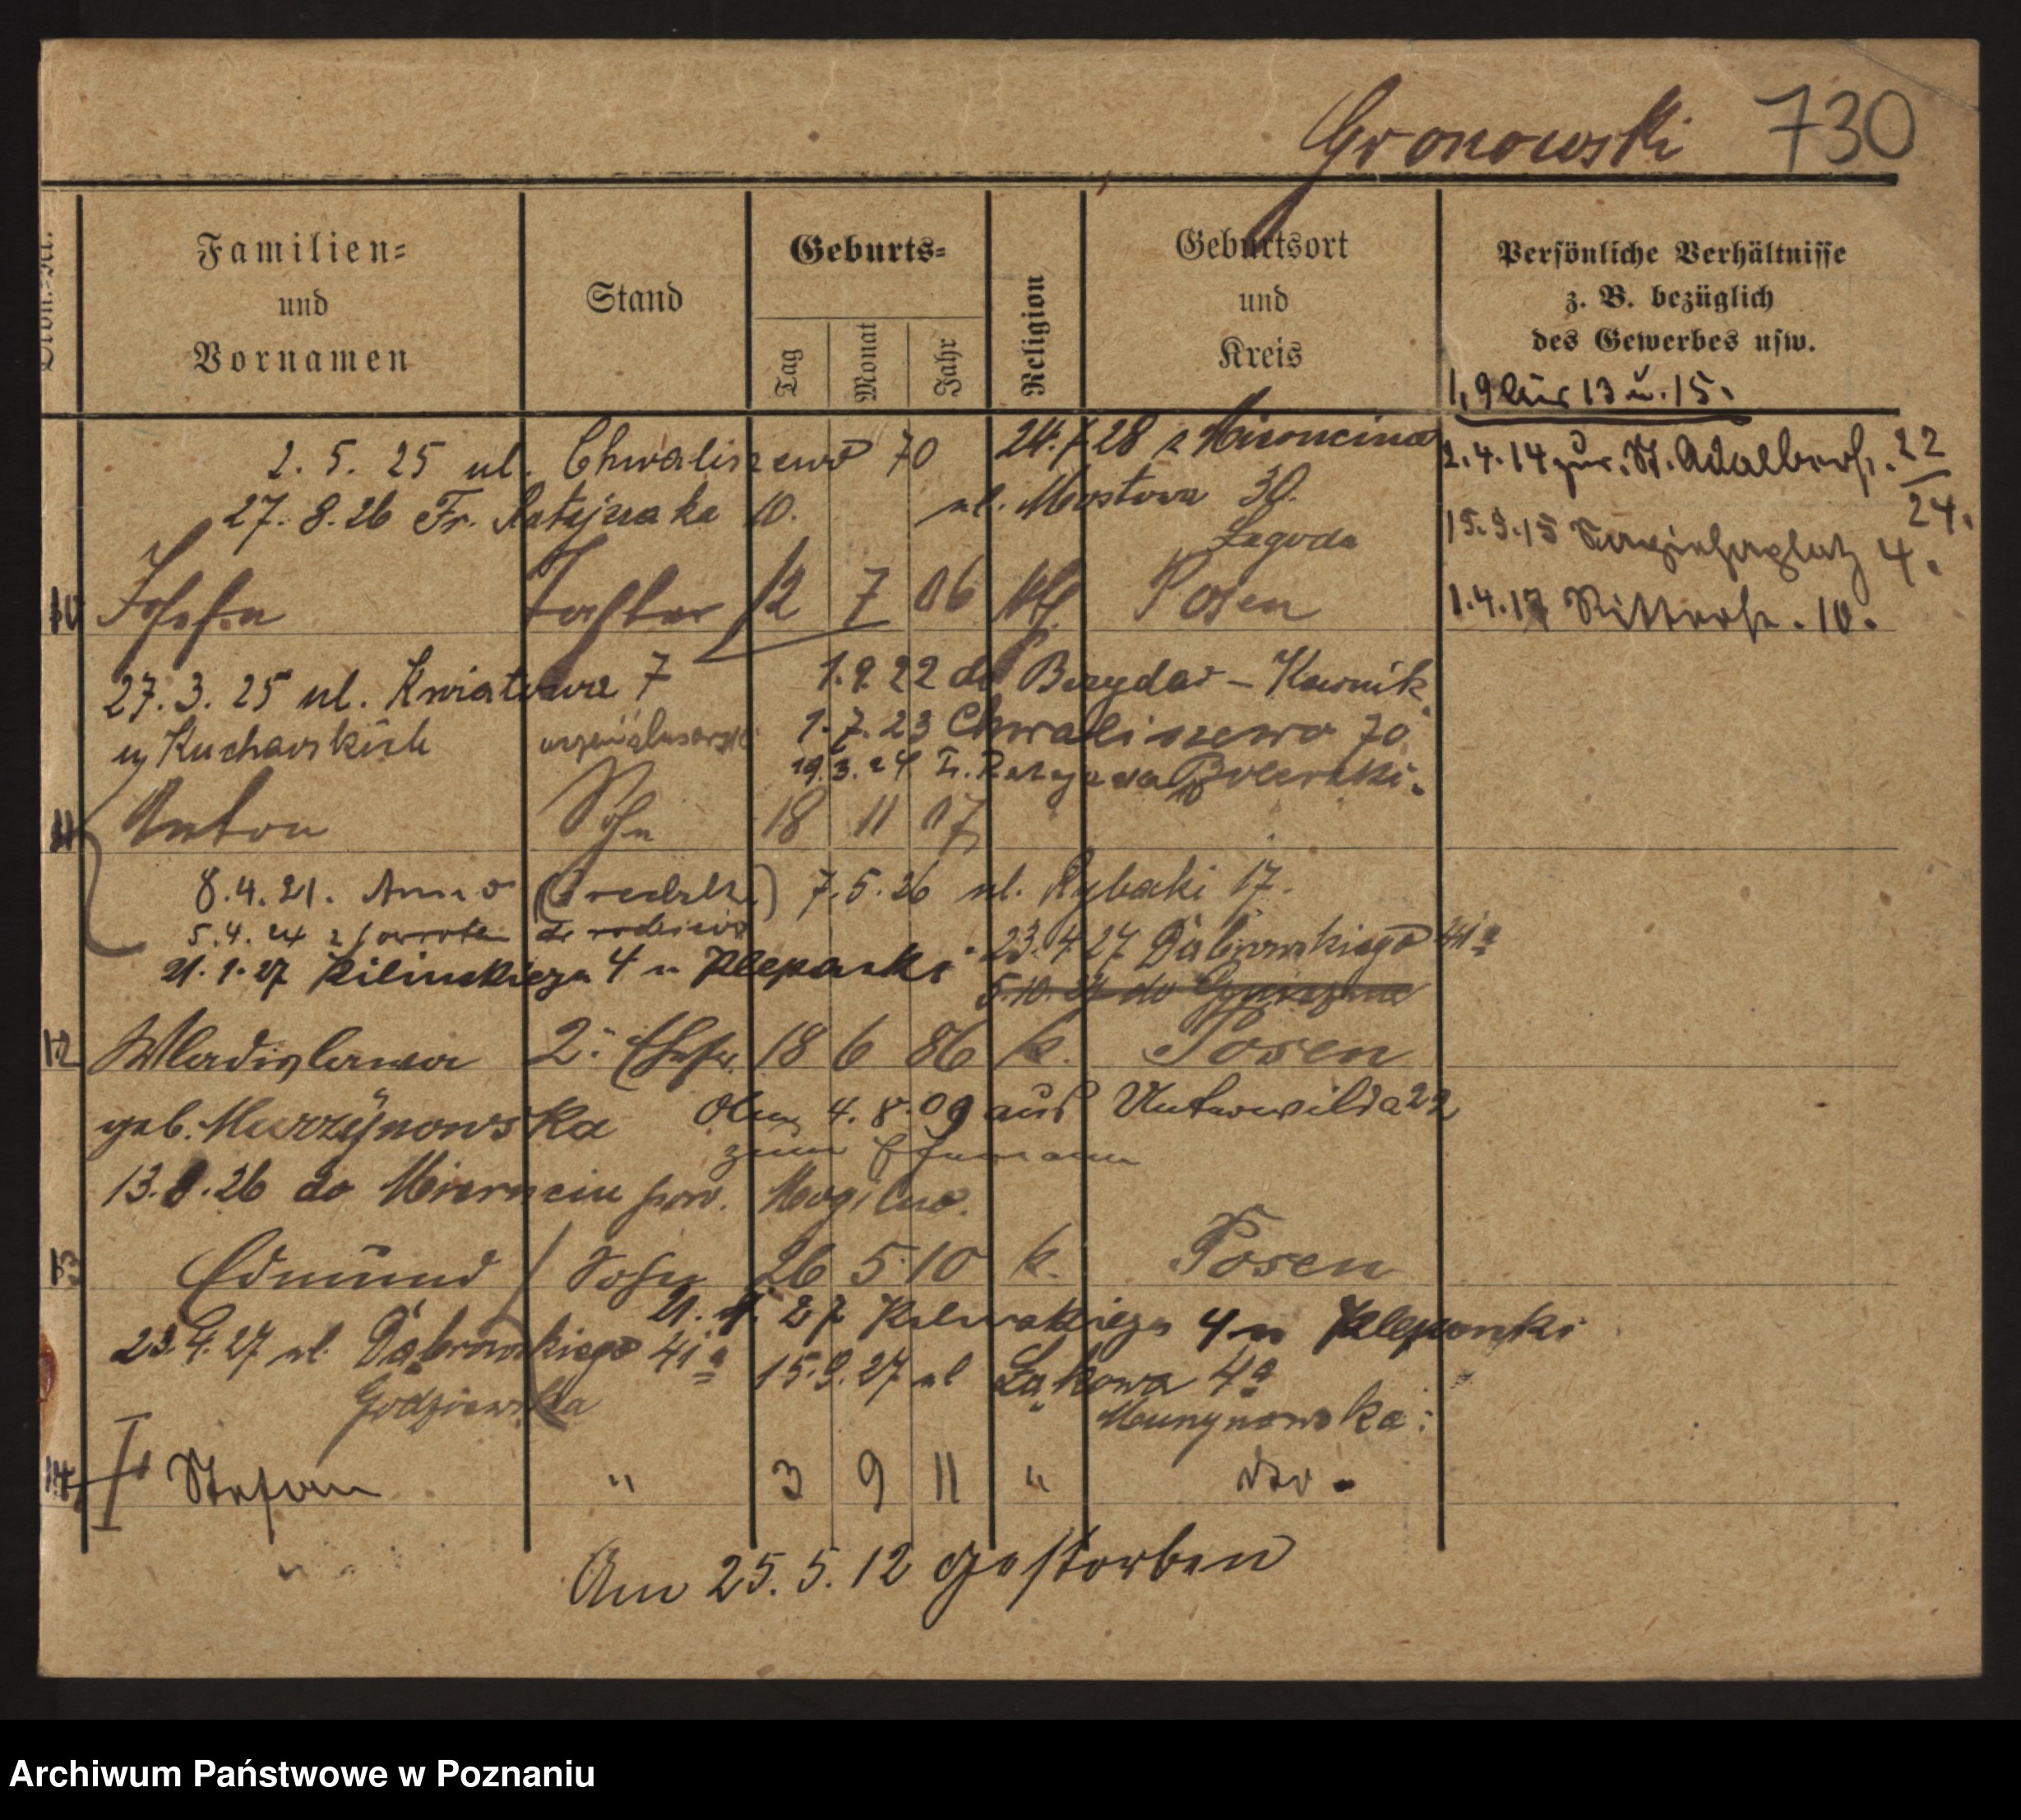 Gronowski 730
Familien=
und
Vornamen
Stand
Geburts=
Tag
Monat
Jahr
Religion
Geburtsort
und
Kreis
Persönliche Verhältnisse
z. B. bezüglich
des Gewerbes usw.
1, 9 13 u. 15.
2. 5. 25 ul. Chwaliszewo 70
24. 7 28 z
2.4.14 zur. St. Adalbertstr. 22/24.
27. 8. 26 Fr. Ratajczaka 10.
ul. Mostowa 30.
Łagoda
15.9.15 Sapiehaplatz 4.
10 Josefa Tochter 12 7 06 kth Posen
1.4.17 Ritterstr. 10.
27. 3. 25 ul. Kwiatowa 7
1. 9. 22 do - Kurnik
u Kucharskich
1. 7. 23 Chwaliszewo 70
19. 3. 24 Fr. Ratajczaka
11 Anton Sohn 18 11 07
8. 4. 21.
7. 5. 26 ul. Rybaki 17.
5. 4. 24
23. 4 27 Dąbrowskiego 41a
21. 1. 27 Kilinskiego 4 u
5. 10. 27 do
12 Wladislawa 2. Ehefr. 18 6 86 k. Posen
geb. Murzÿnowska
4. 8. 09 aus Unterwilda 22
zum Ehemann
13. 8. 26 do pow. Mogilno.
13 Edmund Sohn 26 5 10 k. Posen
21. 1. 27 Kilinskiego 4 u
23. 4. 27 ul. Dąbrowskiego 41a
15. 9. 27 ul Łąkowa 4a
Godziewska
Murzynowska.
14 Stefan " 3 9 11 " dto.
Am 25. 5. 12 gestorben
Archiwum Państwowe w Poznaniu